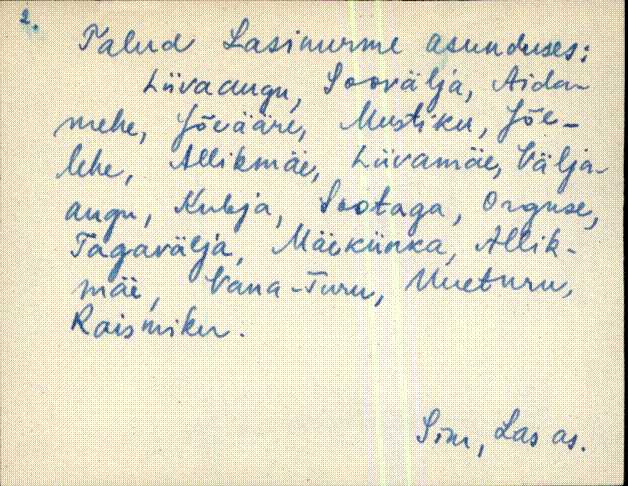 2.
Talud Lasinurme asunduses:
Liivaaugu, Soovälja, Aida-
mehe, Jõeääre, Mustiku, Jõe-
lehe, Allikmäe, Liivamäe, Välja-
augu, Kubja, Sootaga, Orguse,
Tagavälja, Mäekünka, Allik-
mäe, Vana-Turu, Uueturu,
Raismiku.
Sim, Las as.